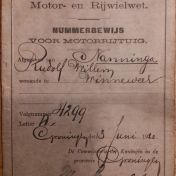 Motor- en Rijwielwet.
NUMMERBEWIJS
VOOR MOTORRIJTUIG.
Afgegeven aan Nanninga
Rudolf Willem
wonende te Winneweer
Volgnummer 4299
Letter A
Groningen, 3 Juni 19
De Commissaris der Koningin in de
provincie Groningen,